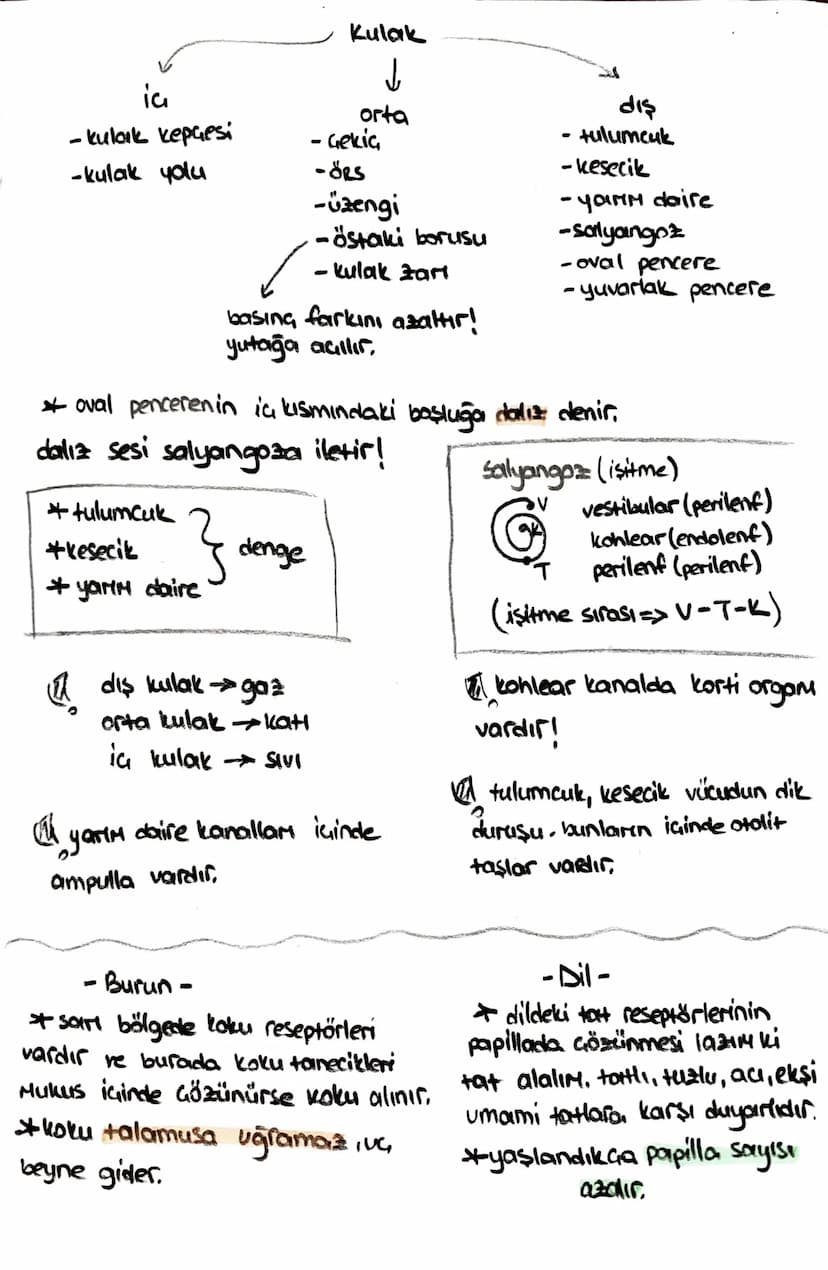 Kulak
iç
- kulak kepçesi
- kulak yolu
orta
- Çekiç
- örs
- üzengi
- östaki borusu
- kulak zarı
basınç farkını azaltır!
yutağa açılır.
dış
- tulumcuk
- kesecik
- yarım daire
- salyangoz
- oval pencere
- yuvarlak pencere
* oval pencerenin iç kısmındaki boşluğa dalız denir.
dalız sesi salyangoza iletir!
* tulumcuk
* kesecik
* yarım daire
denge
salyangoz (işitme)
V
T
vestibular (perilenf)
kohlear (endolenf)
perilenf (perilenf)
(işitme sırası => V - T - K)
dış kulak → gaz
orta kulak → katı
iç kulak → sıvı
kohlear kanalda korti organı
vardır!
yarım daire kanalları içinde
ampulla vardır.
tulumcuk, kesecik vücudun dik
duruşu. bunların içinde otolit
taşlar vardır.
- Burun -
* sarı bölgede koku reseptörleri
vardır ve burada koku tanecikleri
mukus içinde çözünürse koku alınır.
* koku talamusa uğramaz, uç
beyne gider.
- Dil -
* dildeki tat reseptörlerinin
papillada çözünmesi lazım ki
tat alalım. tatlı, tuzlu, acı, ekşi
umami tatlara karşı duyarlıdır.
* yaşlandıkça papilla sayısı
azalır.